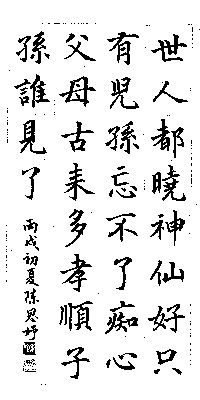 世人都曉神仙好只
有兒孫忘不了痴心
父母古来多孝順子
孫誰見了
丙戌初夏陳思妤